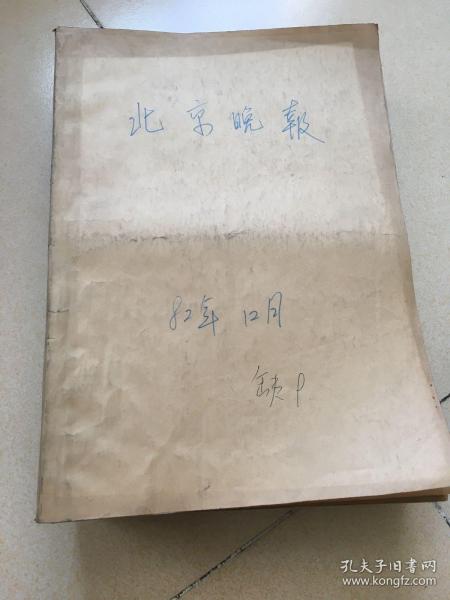 北京晚报
82年 12月
缺
孔夫子旧书网
www.kongfz.com